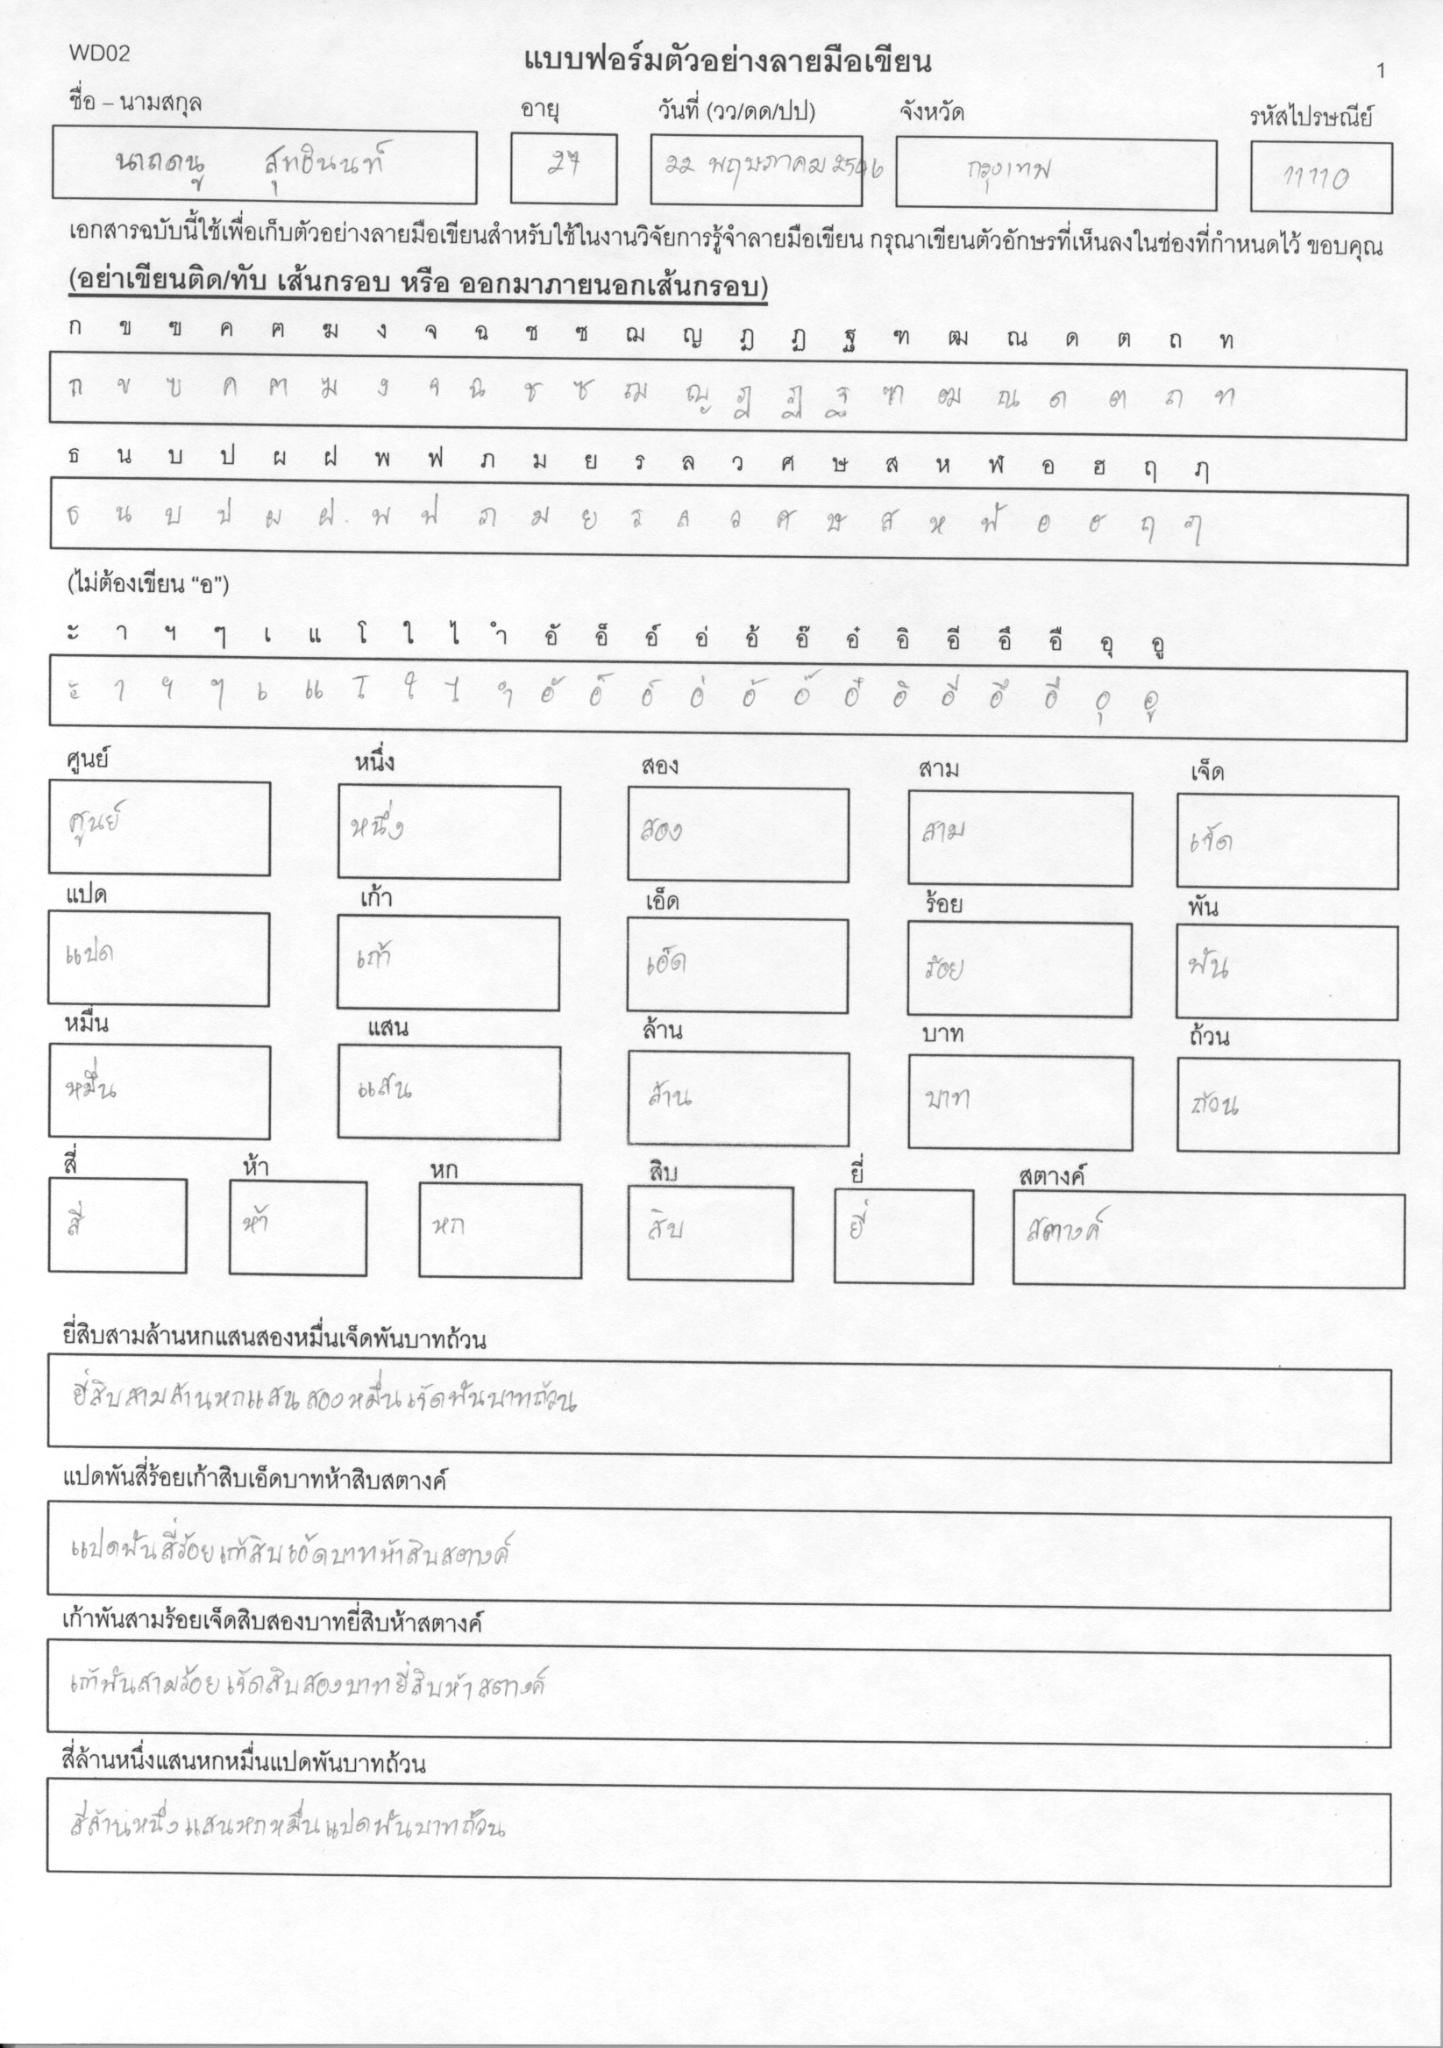 WD02
แบบฟอร์มตัวอย่างลายมือเขียน
1
ชื่อ – นามสกุล อายุ วันที่ (วว/ดด/ปป) จังหวัด รหัสไปรษณีย์
สุทธินนท์ 27 22 พฤษภาคม 2546 กรุงเทพ 11110
เอกสารฉบับนี้ใช้เพื่อเก็บตัวอย่างลายมือเขียนสำหรับใช้ในงานวิจัยการรู้จำลายมือเขียน กรุณาเขียนตัวอักษรที่เห็นลงในช่องที่กำหนดไว้ ขอบคุณ
(อย่าเขียนติด/ทับ เส้นกรอบ หรือ ออกมาภายนอกเส้นกรอบ)
ก ข ฃ ค ฅ ฆ ง จ ฉ ช ซ ฌ ญ ฎ ฏ ฐ ฑ ฒ ณ ด ต ถ ท
ก ข ฃ ค ฅ ฆ ง จ ฉ ช ซ ฌ ญ ฎ ฏ ฐ ฑ ฒ ณ ด ต ถ ท
ธ น บ ป ผ ฝ พ ฟ ภ ม ย ร ล ว ศ ษ ส ห ฬ อ ฮ ฤ ฦ
ธ น บ ป ผ ฝ พ ฟ ภ ม ย ร ล ว ศ ษ ส ห ฬ อ ฮ ฤ ฦ
(ไม่ต้องเขียน “อ”)
ะ า ฯ ๆ เ แ โ ใ ไ ำ อั อ็ อ์ อ่ อ้ อ๊ อ๋ อิ อี อึ อื อุ อู
ะ า ฯ ๆ เ แ โ ใ ไ ำ อั อ็ อ์ อ่ อ้ อ๊ อ๋ อิ อี อึ อื อุ อู
ศูนย์ หนึ่ง สอง สาม เจ็ด
ศูนย์ หนึ่ง สอง สาม เจ็ด
แปด เก้า เอ็ด ร้อย พัน
แปด เก้า เอ็ด ร้อย พัน
หมื่น แสน ล้าน บาท ถ้วน
หมื่น แสน ล้าน บาท ถ้วน
สี่ ห้า หก สิบ ยี่ สตางค์
สี่ ห้า หก สิบ ยี่ สตางค์
ยี่สิบสามล้านหกแสนสองหมื่นเจ็ดพันบาทถ้วน
ยี่สิบสามล้านหกแสนสองหมื่นเจ็ดพันบาทถ้วน
แปดพันสี่ร้อยเก้าสิบเอ็ดบาทห้าสิบสตางค์
แปดพันสี่ร้อยเก้าสิบเอ็ดบาทห้าสิบสตางค์
เก้าพันสามร้อยเจ็ดสิบสองบาทยี่สิบห้าสตางค์
เก้าพันสามร้อยเจ็ดสิบสองบาทยี่สิบห้าสตางค์
สี่ล้านหนึ่งแสนหกหมื่นแปดพันบาทถ้วน
สี่ล้านหนึ่งแสนหกหมื่นแปดพันบาทถ้วน